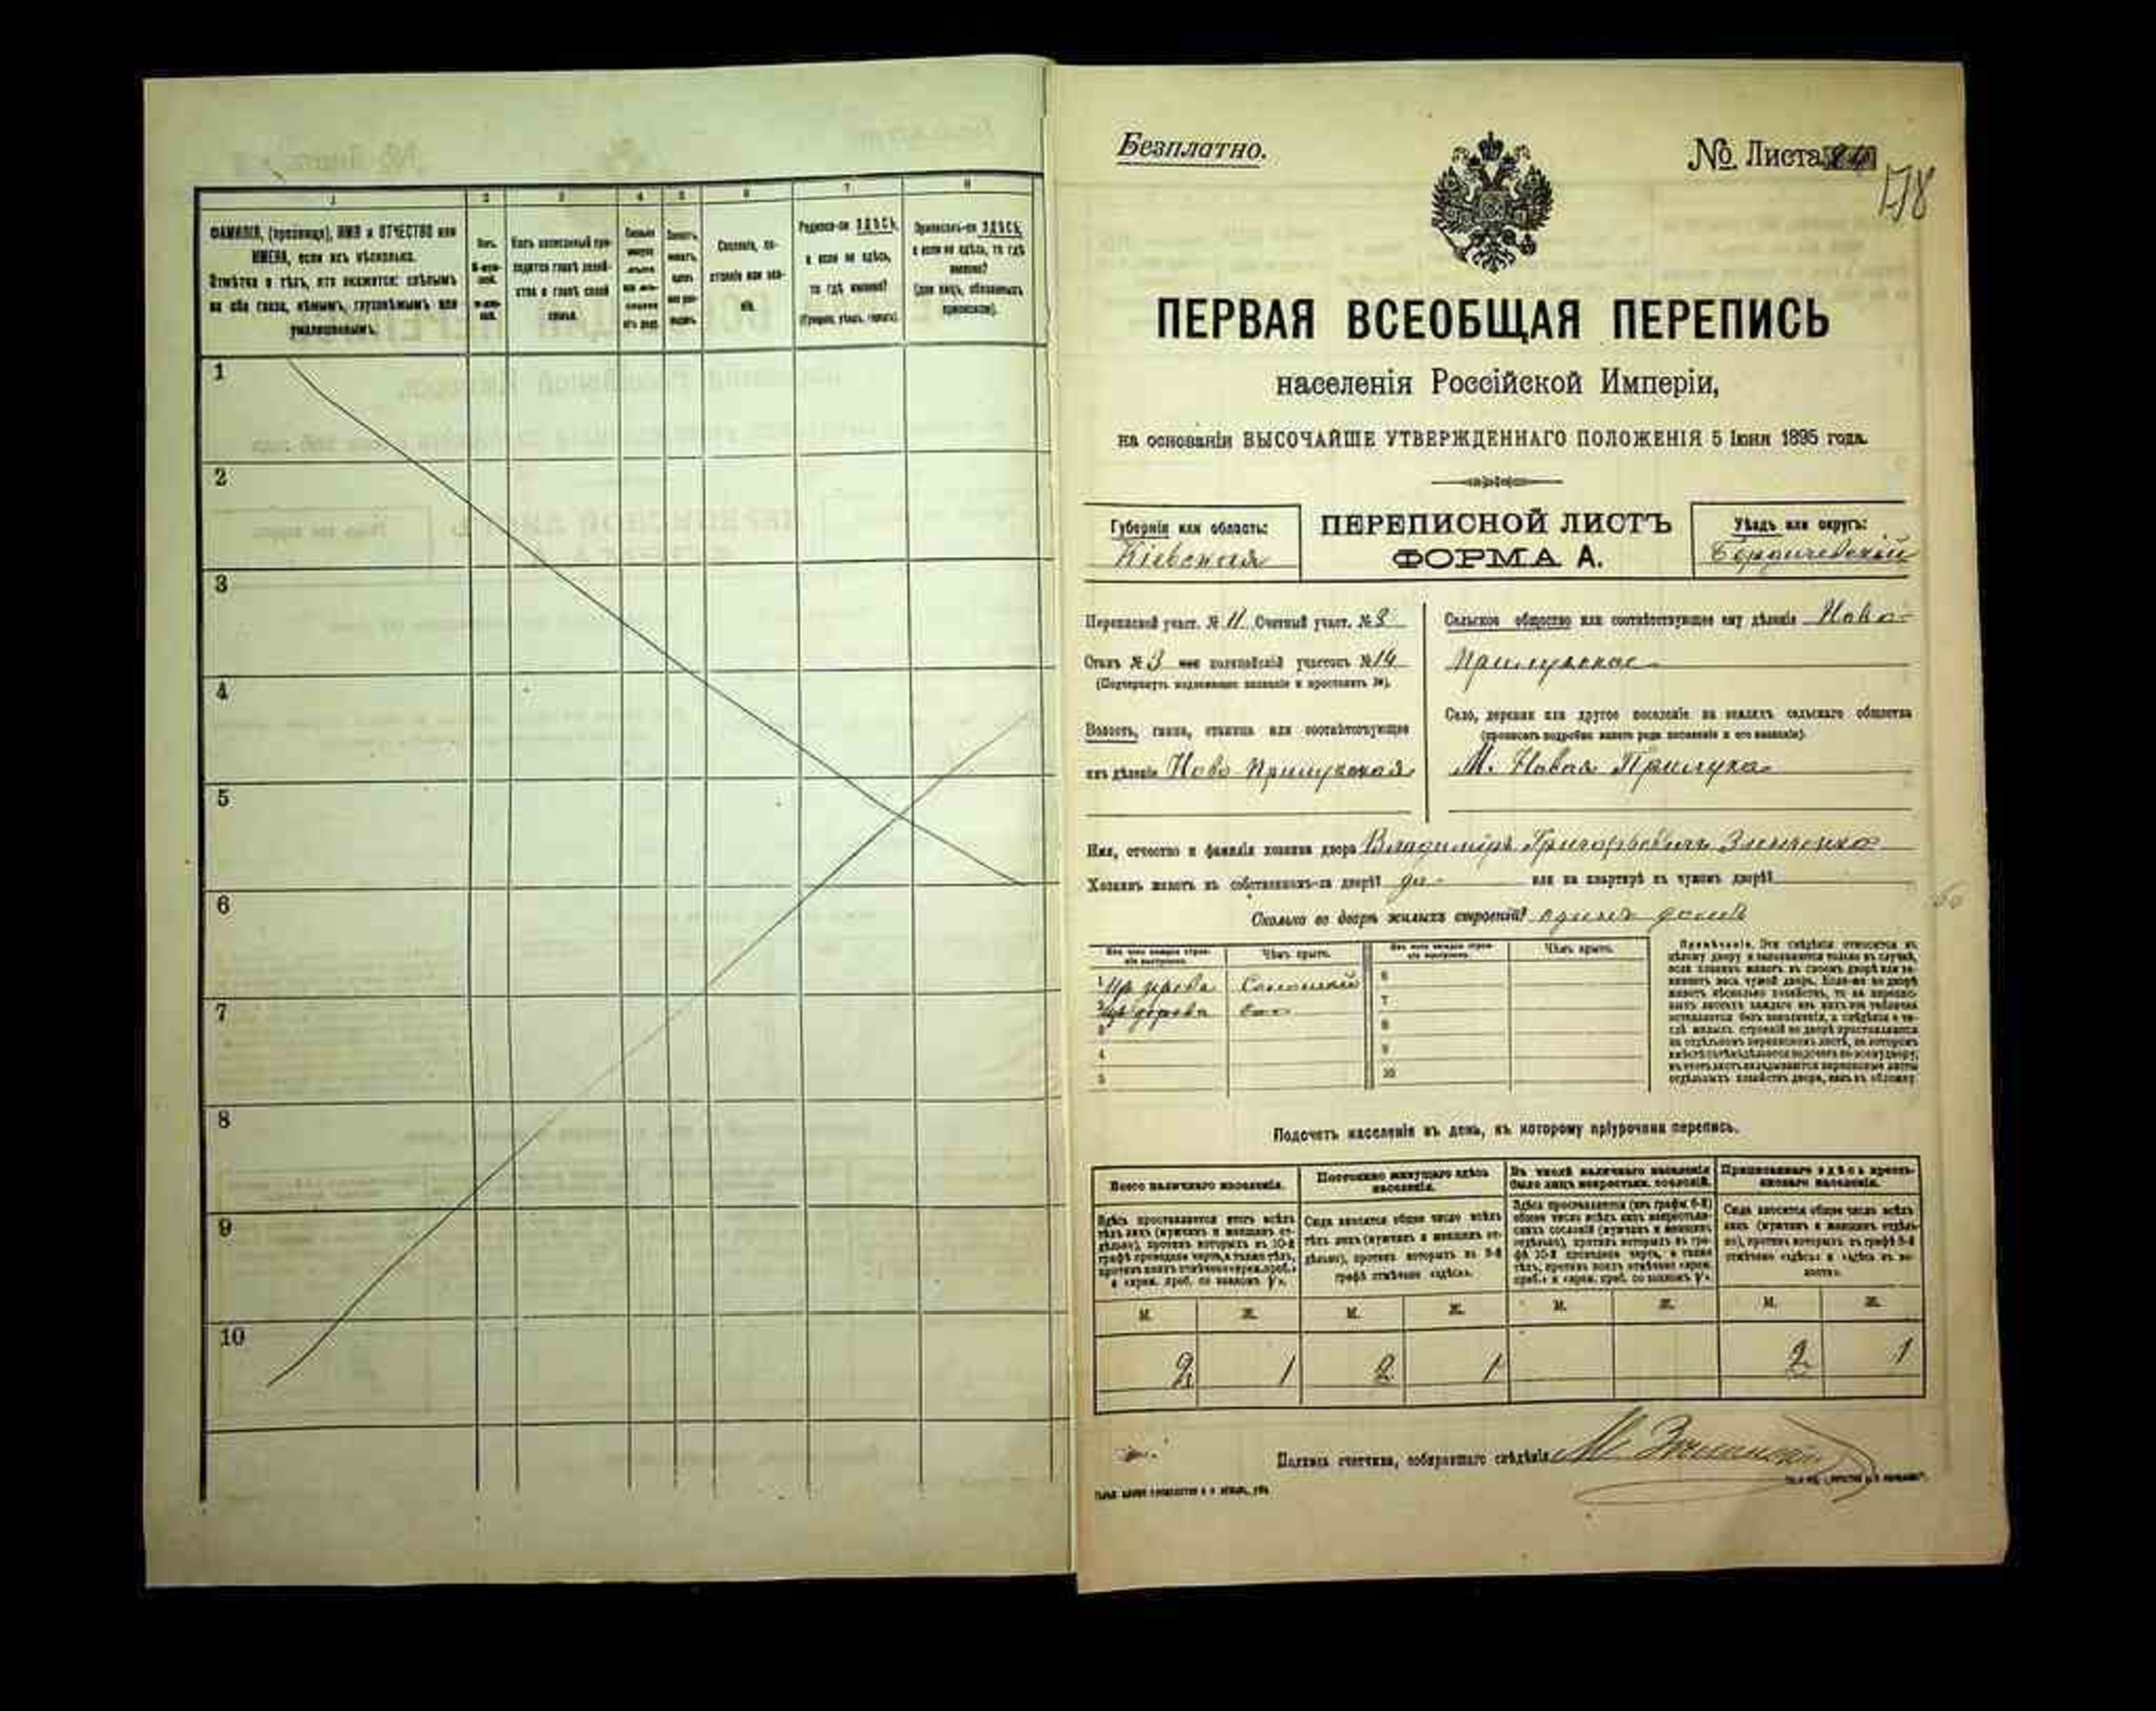 1 2 3 4 5 6 7 8
ФАМИЛІЯ, (прозвище), ИМЯ и ОТЧЕСТВО или
ИМЕНА, если ихъ нѣсколько.
Отмѣтка о тѣхъ, кто окажется: слѣпымъ
на оба глаза, нѣмымъ, глухонѣмымъ или
умалишеннымъ.
Полъ.
Какъ записанный при-
ходится главѣ хозяй-
ства и главѣ своей
семьи.
Сословіе, со-
стояніе или зва-
ніе.
Родился-ли ЗДѢСЬ,
а если не здѣсь,
то гдѣ именно?
(Губернія, уѣздъ, городъ).
Приписанъ-ли ЗДѢСЬ,
а если не здѣсь, то гдѣ
именно?
(для лицъ, обязанныхъ
припискою).
1
2
3
4
5
6
7
8
9
10
Безплатно.
№ Листа
178
ПЕРВАЯ ВСЕОБЩАЯ ПЕРЕПИСЬ
населенія Россійской Имперіи,
на основаніи ВЫСОЧАЙШЕ УТВЕРЖДЕННАГО ПОЛОЖЕНІЯ 5 Іюня 1895 года.
Губернія или область:
Кіевская
ПЕРЕПИСНОЙ ЛИСТЪ
ФОРМА А.
Уѣздъ или округъ:
Бердичевскій
Переписной участ. № 11 Счетный участ. № 3
Станъ № 3 или полицейскій участокъ № 14
(Подчеркнуть надлежащее названіе и проставить №).
Волость, гмина, станица или соотвѣтствующее
имъ дѣленіе Ново Прилукская
Сельское общество или соотвѣтствующее ему дѣленіе Ново-
Прилукское
Село, деревня или другое поселеніе на земляхъ сельскаго общества
(прописать подробно какого рода поселеніе и его названіе).
М. Новая Прилука
Имя, отчество и фамилія хозяина двора Владиміръ Григорьевичъ Зинченко
Хозяинъ живетъ въ собственномъ-ли дворѣ? да - или на квартирѣ въ чужомъ дворѣ?
Сколько во дворѣ жилыхъ строеній? одинъ домъ
Изъ чего каждое строе-
ніе выстроено.
Чѣмъ крыто.
Изъ чего каждое строе-
ніе выстроено.
Чѣмъ крыто.
1 Соломой 6
2 7
3 8
4 9
5 10
Примѣчаніе. Эти свѣдѣнія относятся къ
цѣлому двору и заполняются только въ случаѣ,
если хозяинъ живетъ въ своемъ дворѣ или за-
нимаетъ весь чужой дворъ. Если-же во дворѣ
живетъ нѣсколько хозяйствъ, то на перепис-
ныхъ листахъ каждаго изъ нихъ эта табличка
оставляется безъ заполненія, а свѣдѣнія о чи-
слѣ жилыхъ строеній во дворѣ проставляются
на отдѣльномъ переписномъ листѣ, на которомъ
отдѣльныхъ хозяйствъ двора, какъ въ обложку.
Подсчетъ населенія въ день, къ которому пріурочена перепись.
Всего наличнаго населенія.
Постоянно живущаго здѣсь
населенія.
Въ числѣ наличнаго населенія
было лицъ некрестьян. сословій.
Приписаннаго здѣсь кресть-
янскаго населенія.
Здѣсь проставляется итогъ всѣхъ
тѣхъ лицъ (мужчинъ и женщинъ от-
дѣльно), противъ которыхъ въ 10-й
графѣ проведена черта, а также тѣхъ,
противъ коихъ отмѣчено «врем. преб.»
Сюда вносится общее число всѣхъ
тѣхъ лицъ (мужчинъ и женщинъ от-
дѣльно), противъ которыхъ въ 9-й
графѣ отмѣчено «здѣсь».
Здѣсь проставляется (изъ графы 6-й)
общее число всѣхъ лицъ некрестьян-
скихъ сословій (мужчинъ и женщинъ
отдѣльно), противъ которыхъ въ гра-
фѣ 10-й проведена черта, а также
тѣхъ, противъ коихъ отмѣчено «врем.
Сюда вносится общее число всѣхъ
лицъ (мужчинъ и женщинъ отдѣль-
но), противъ которыхъ въ графѣ 8-й
отмѣчено «здѣсь» и «здѣсь въ во-
лости».
М. Ж. М. Ж. М. Ж. М. Ж.
2 1 2 1 2 1
Подпись счетчика, собиравшаго свѣдѣнія М.